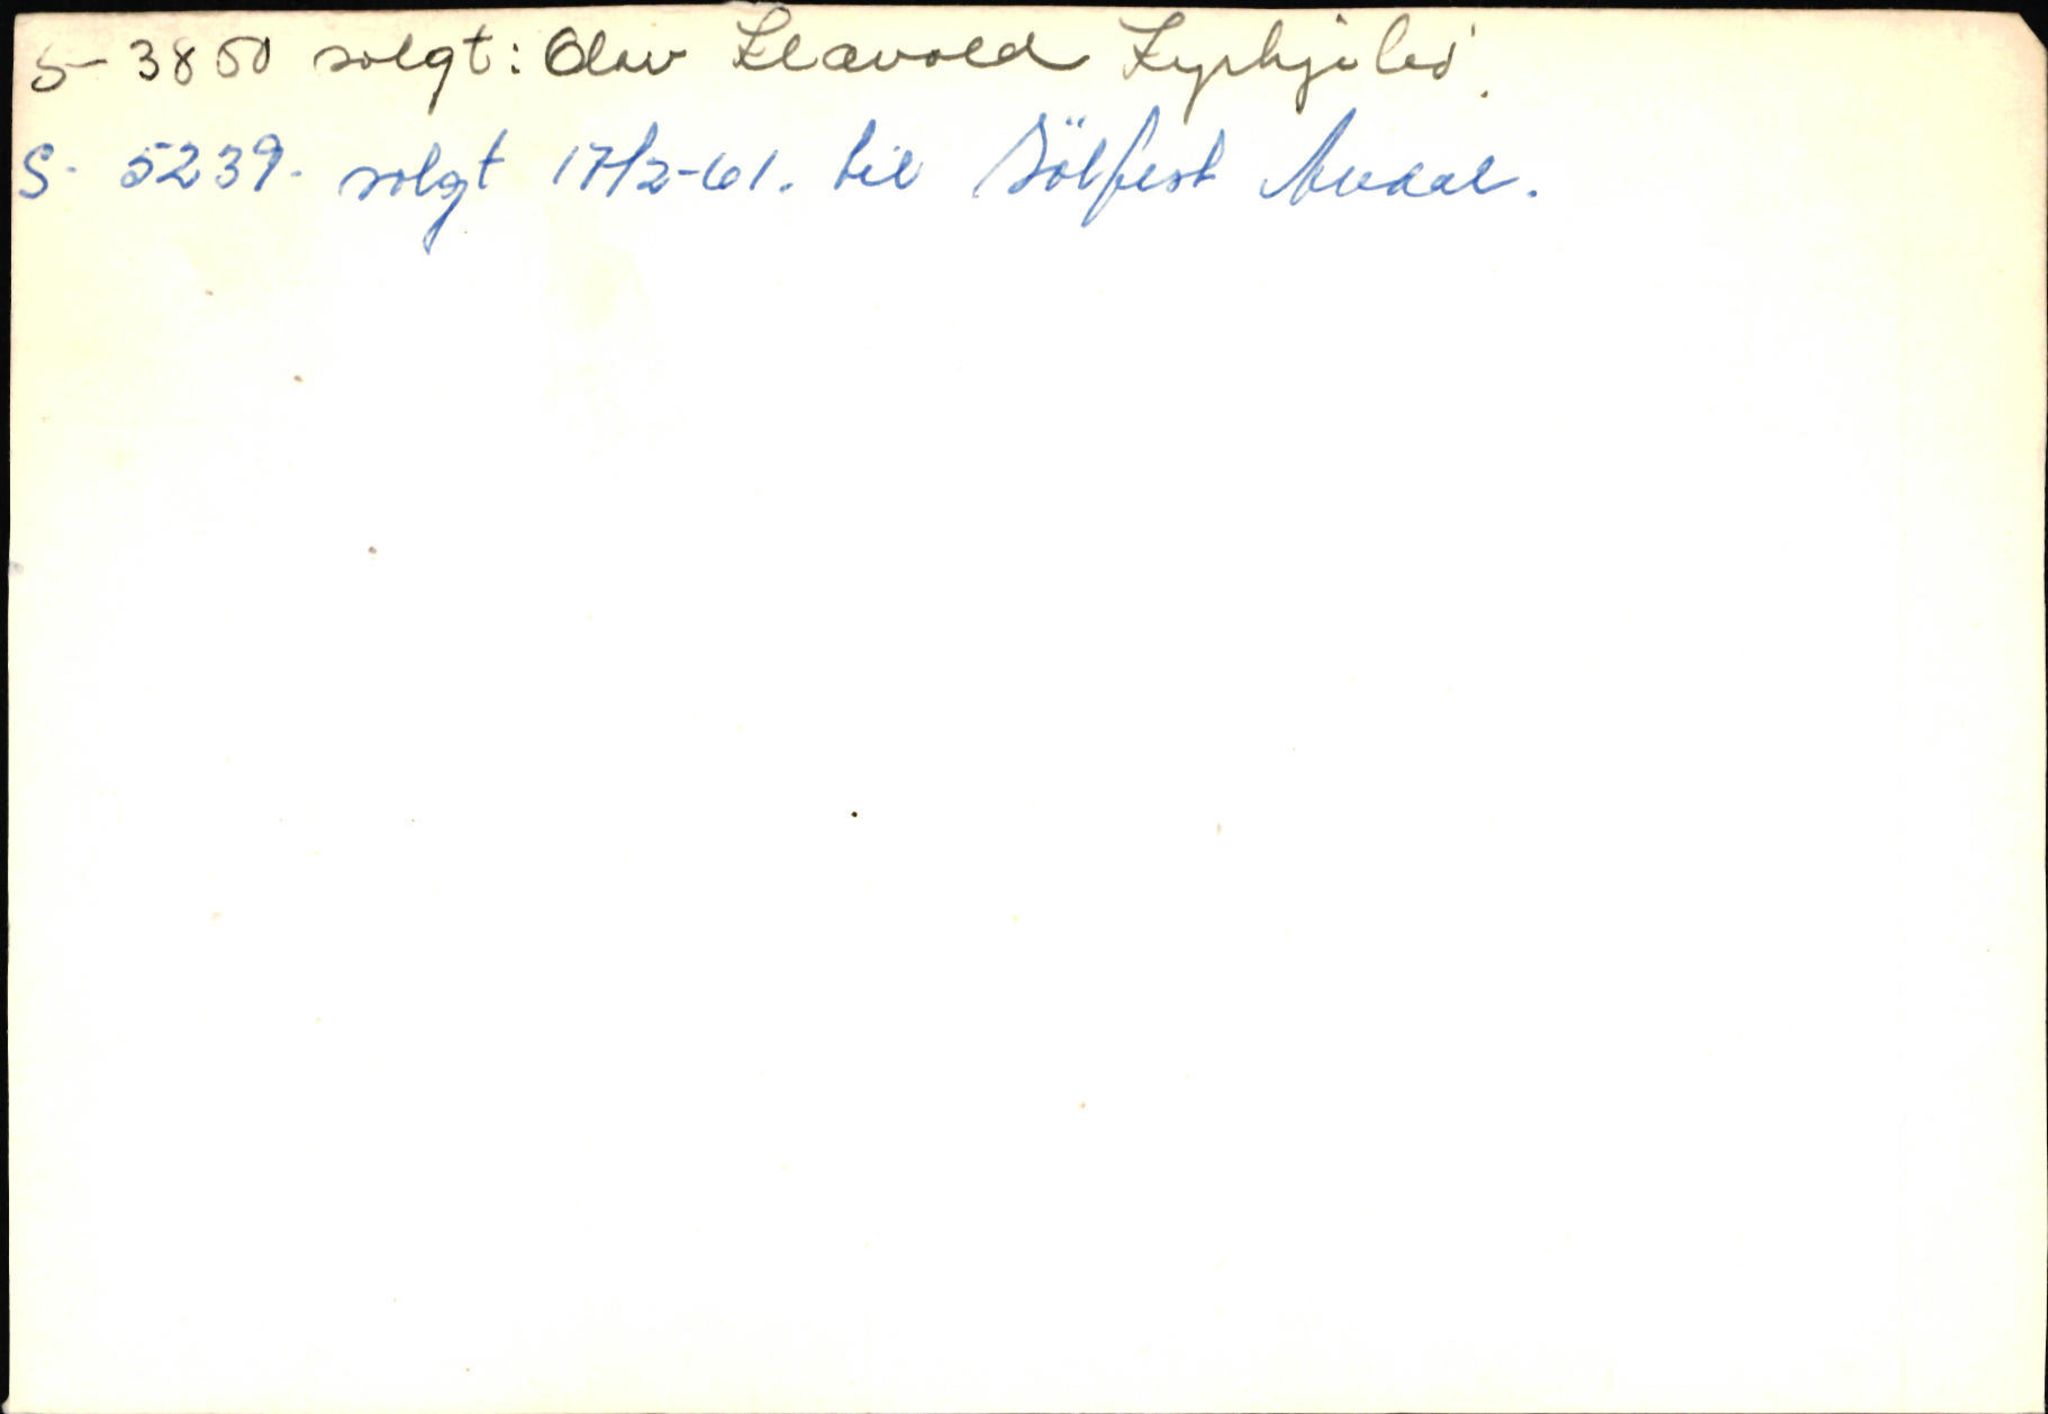 S- 3850 solgt: Olav Klævold Kyrkjebø.
S- 5239- solgt 17/2-61. til Sölfest Audal.